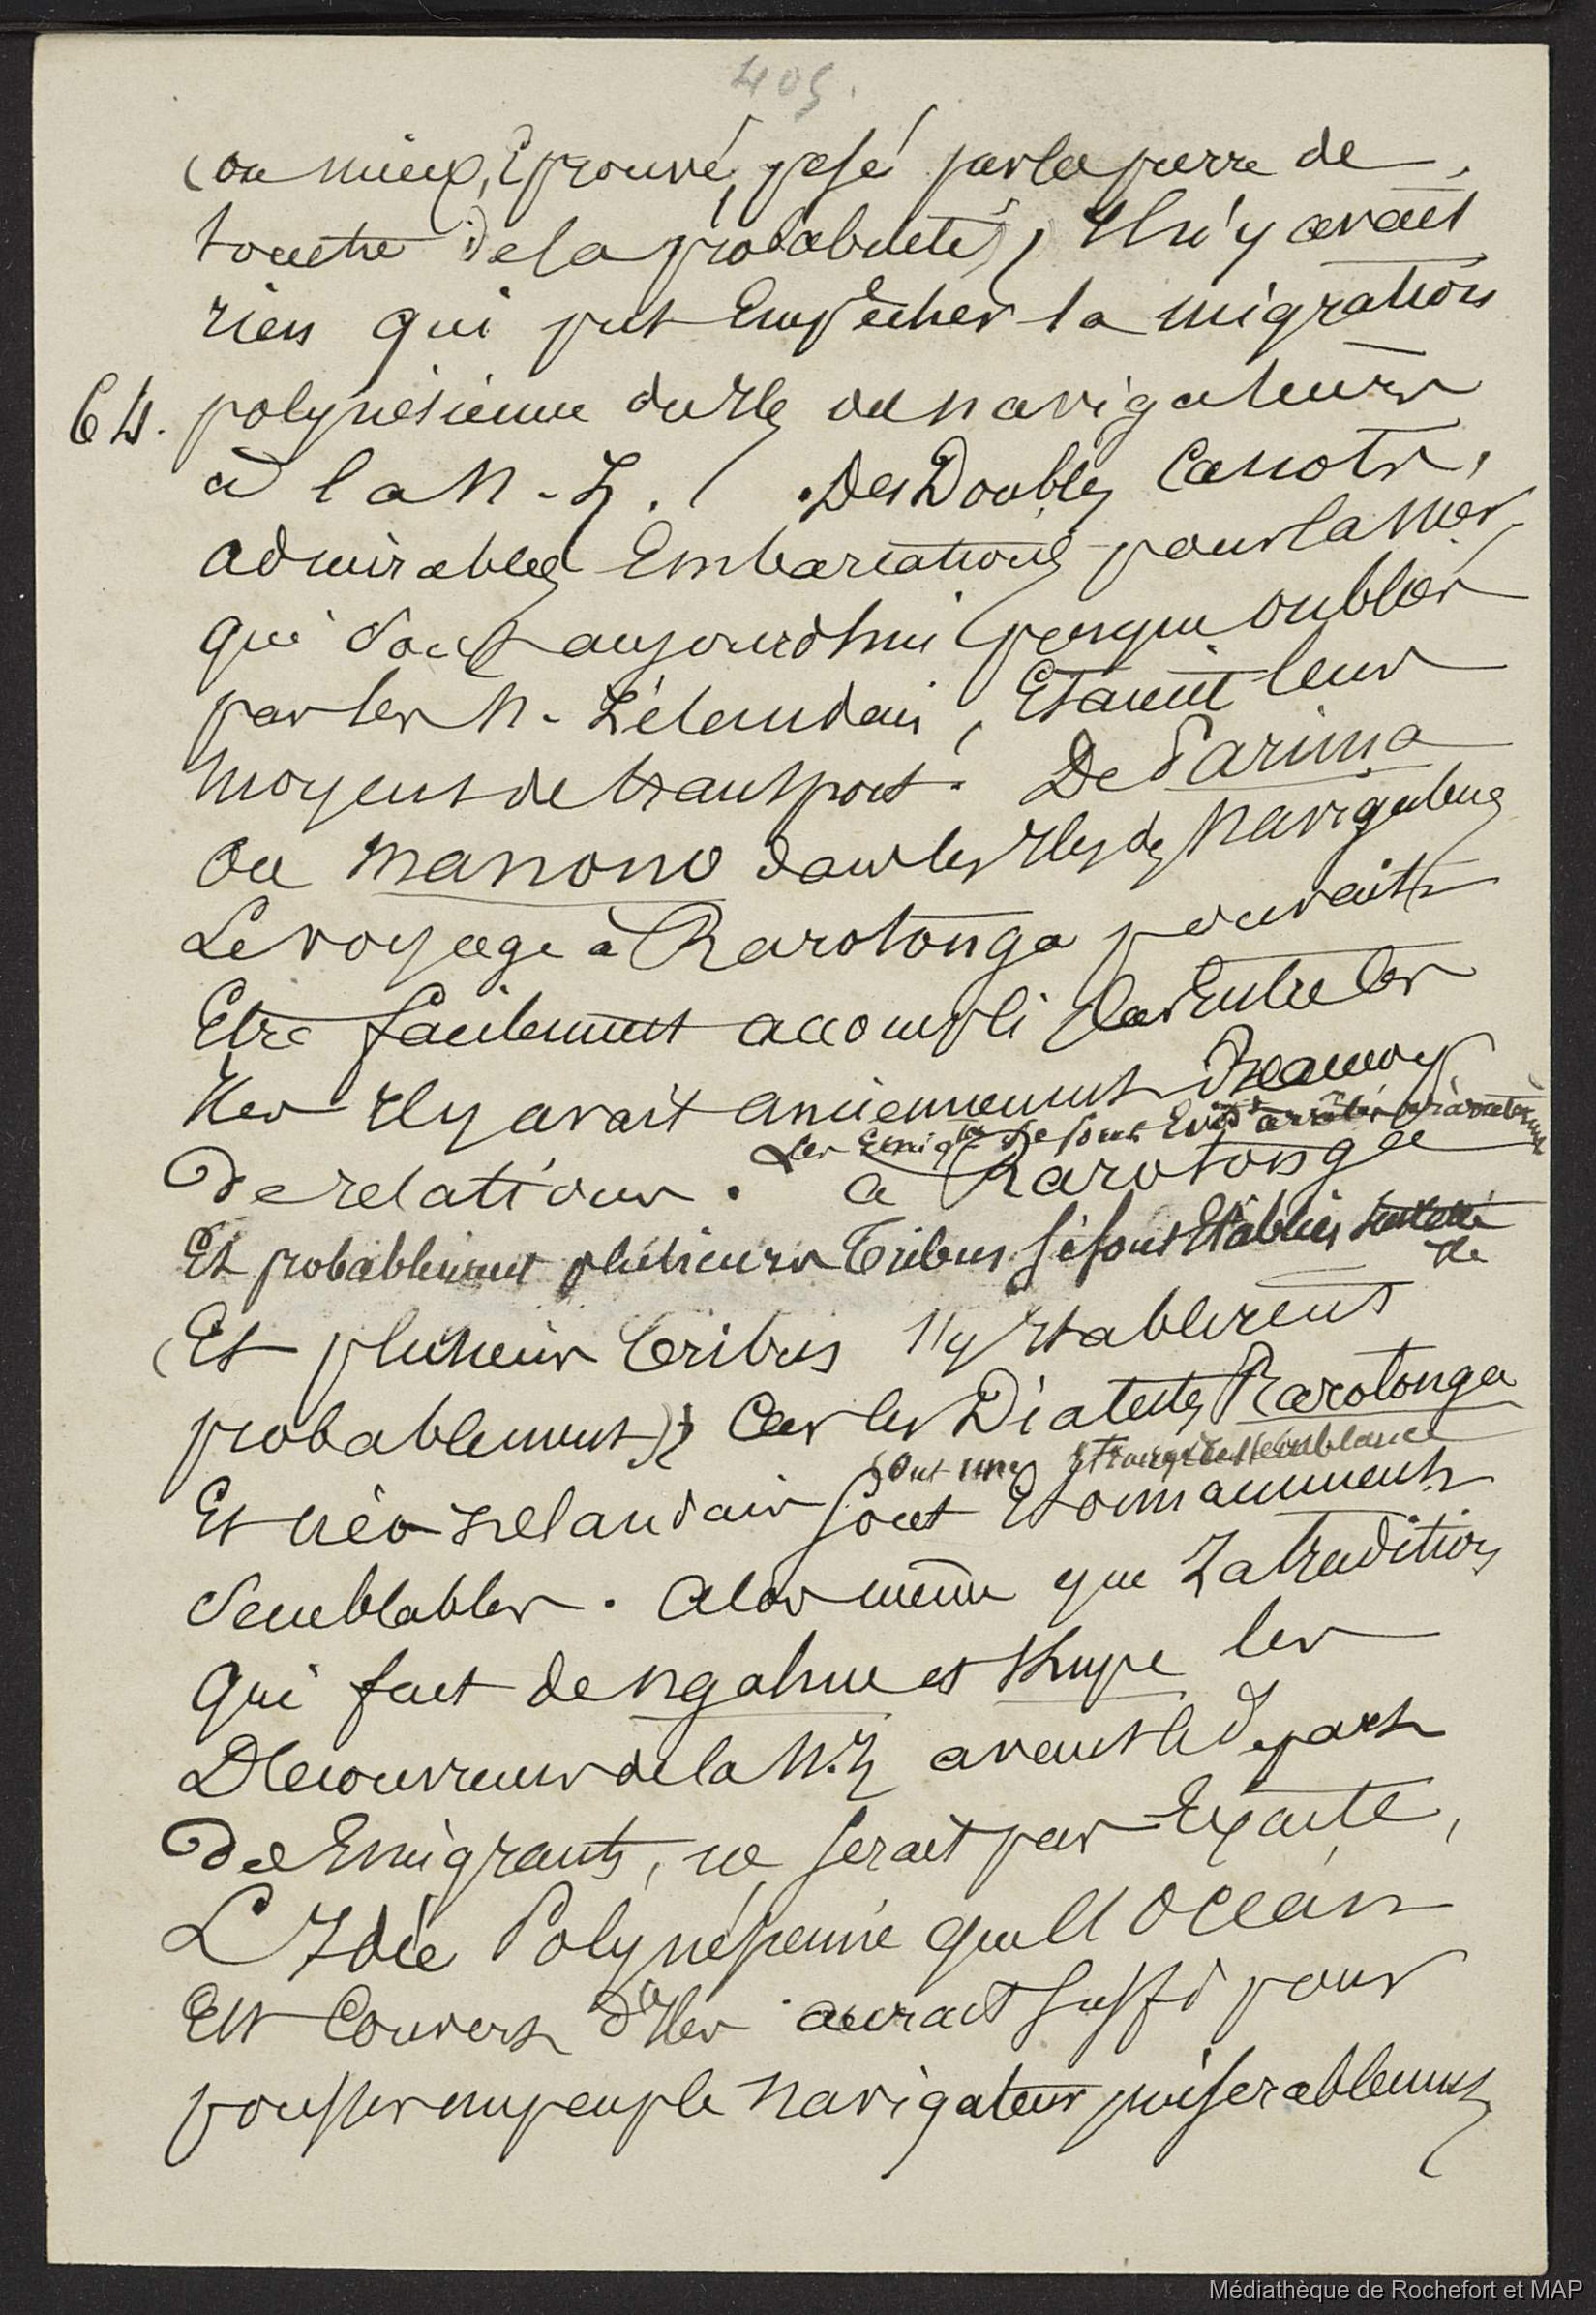 405.
(ou mieux, éprouvé, pesé par la pierre de
touche de la probabilité), Il n'y avait
rien qui put empêcher la migration
64. polynésienne des Iles des navigateurs
à la N-Z. / . Des Doubles Canots,
admirables Embarcations pour la mer,
qui sont aujourdhui presque oubliés
par les N-Zélandais, Etaient leur
moyens de transport. De Sarima
ou manono dans les Iles des Navigateurs
Le voyage à Rarotonga pouvait
Etre facilement accompli car Entre les
Iles Il y avait anciennement Beaucoup
Les Emigrés se sont
De relations. a Rarotonga
Et probablement plusieurs Tribus se sont Etablies
(Et plusieurs Tribus s'y Etablirent
probablement), Car les Dialectes Rarotonga
ont une Etrange ressemblance
Et néo-zelandais sont Etonnamment
Semblables. Alors même que La tradition
qui fait de ngahue et Kupe les
Découvreurs de la N.Z avant le Départ
Des Emigrants, ne serait pas Exacte,
L'Idée Polynésienne que l'Océan
Est Couvert d'Iles aurait suffi pour
pousser un peuple navigateur
Médiathèque de Rochefort et MAP